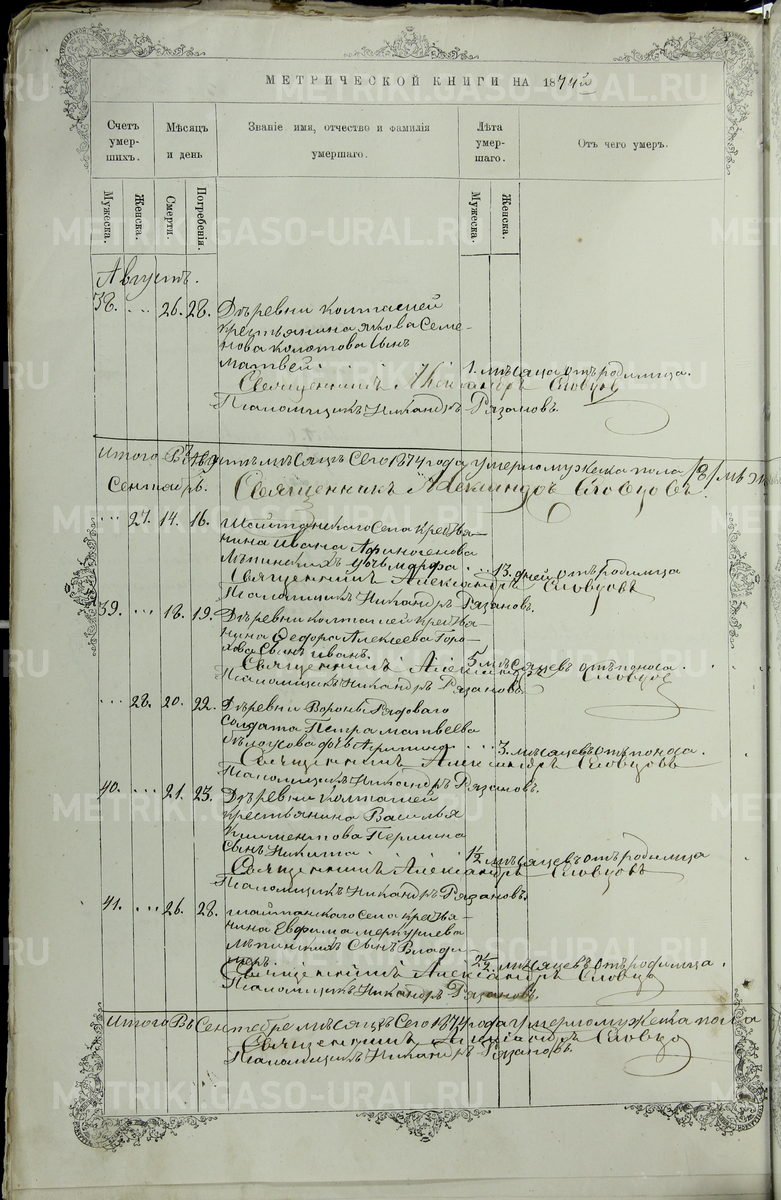 МЕТРИЧЕСКОЙ КНИГИ НА 1874й
Счетъ умер- шихъ.
Мѣсяцъ и день
Званіе имя, отчество и фамилія умершаго.
Лѣта умер- шаго.
Отъ чего умеръ.
Мужеска.
Женска.
Смерти.
Погребенія.
Мужеска.
Женска.
Августъ.
38. ... 26. 28. Деревни Колташей
крестьянина Якова Семе-
нова Колотова сынъ
Матвей. 1. мѣсяца отъ родимца.
Священникъ Александръ Словцовъ
Псаломщикъ Никандръ Рязановъ.
Итого въ Августъ мѣсяцъ сего 1874 года умерло мужеска пола /8/
Сентябрь. Священникъ Александръ Словцовъ.
... 27. 14. 16. Шайтанскаго села крестья-
нина Ивана Афиногенова
дочь Марфа. ... 13. дней отъ родимца
Священникъ Александръ Словцовъ
Псаломщикъ Никандръ Рязановъ.
39. ... 18. 19. Деревни Колташей крестья-
нина Федора Алексеева Горо-
хова сынъ Иванъ. 5. мѣсяцевъ отъ поноса.
Священникъ Александръ Словцовъ
Псаломщикъ Никандръ Рязановъ.
... 28. 20. 22. Деревни Вороньей рядоваго
солдата Петра Матвеева
дочь ... 3. мѣсяцевъ отъ поноса.
Священникъ Александръ Словцовъ
Псаломщикъ Никандръ Рязановъ.
40. ... 21. 23. Деревни Колташей
крестьянина Василья
Климентова Пермина
сынъ Никита. 1½ мѣсяцевъ отъ родимца
Священникъ Александръ Словцовъ
Псаломщикъ Никандръ Рязановъ.
41. ... 26. 28. Шайтанскаго села крестья-
нина Евфима Меркурьева
сынъ Влади-
миръ. 2½ мѣсяцевъ отъ родимца.
Священникъ Александръ Словцовъ
Псаломщикъ Никандръ Рязановъ.
Итого въ Сентябре мѣсяцъ сего 1874 года умерло мужеска пола
Священникъ Александръ Словцовъ
Псаломщикъ Никандръ Рязановъ.
METRIKI.GASO-URAL.RU